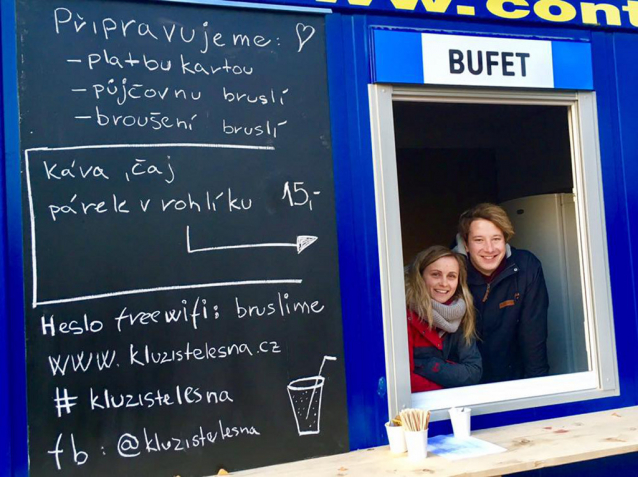 www.cont
BUFET
Připravujeme:
- platbu kartou
- půjčovnu bruslí
- broušení bruslí
káva, čaj
párek v rohlíku 15,-
Heslo free wifi: bruslime
www.kluzistelesna.cz
# kluzistelesna
fb: @kluzistelesna